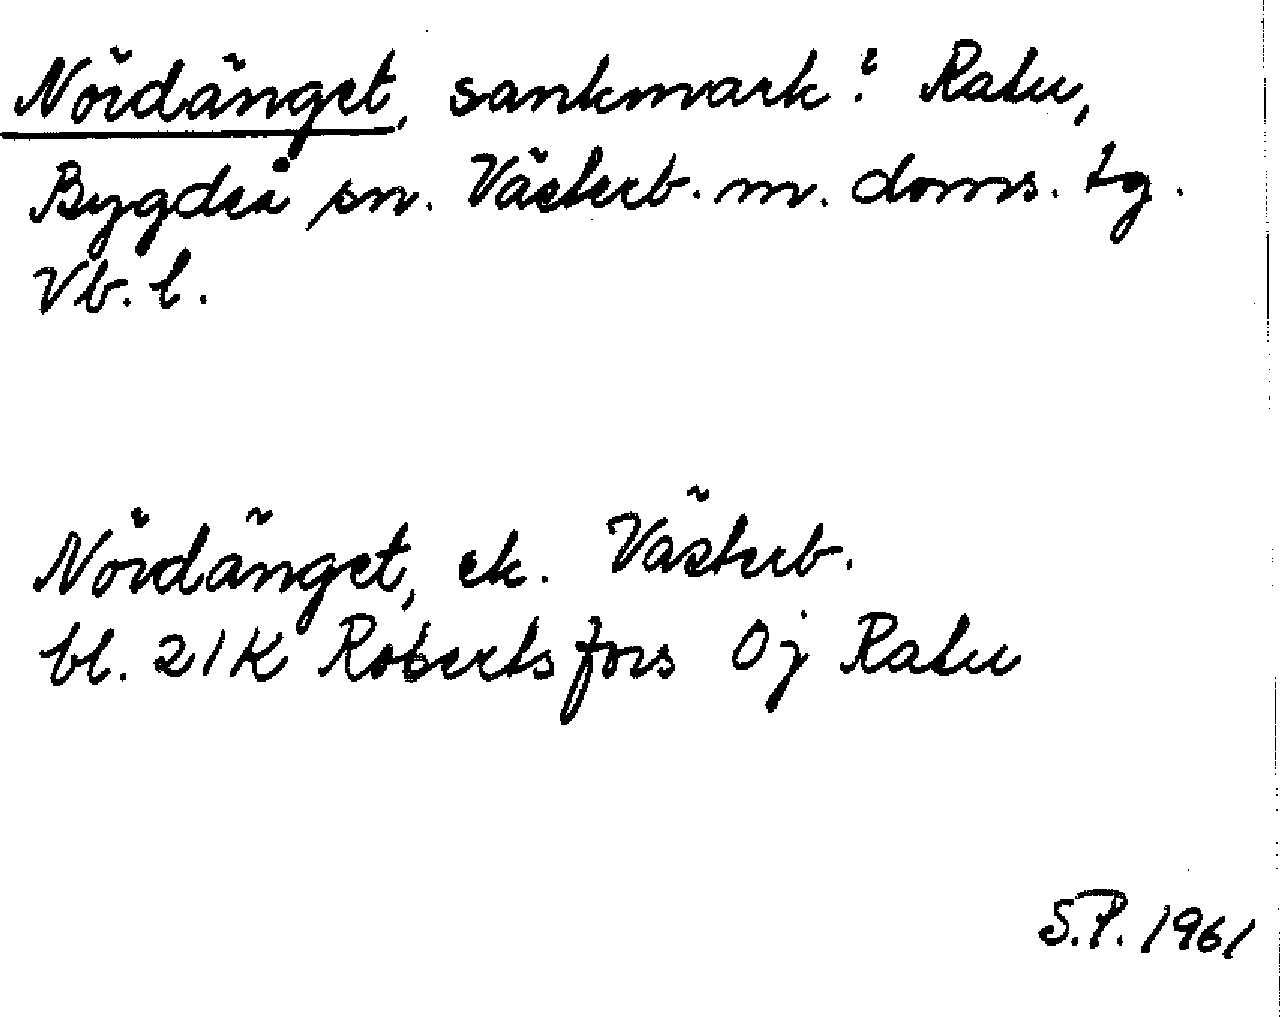 Nördänget, sankmark i Ratu,
Bygdeå sn. Västerb. m. doms. tg.
Vb. l.
Nördänget, ek. Västerb.
bl. 21K Robertsfors 0j Ratu
S.P. 1961